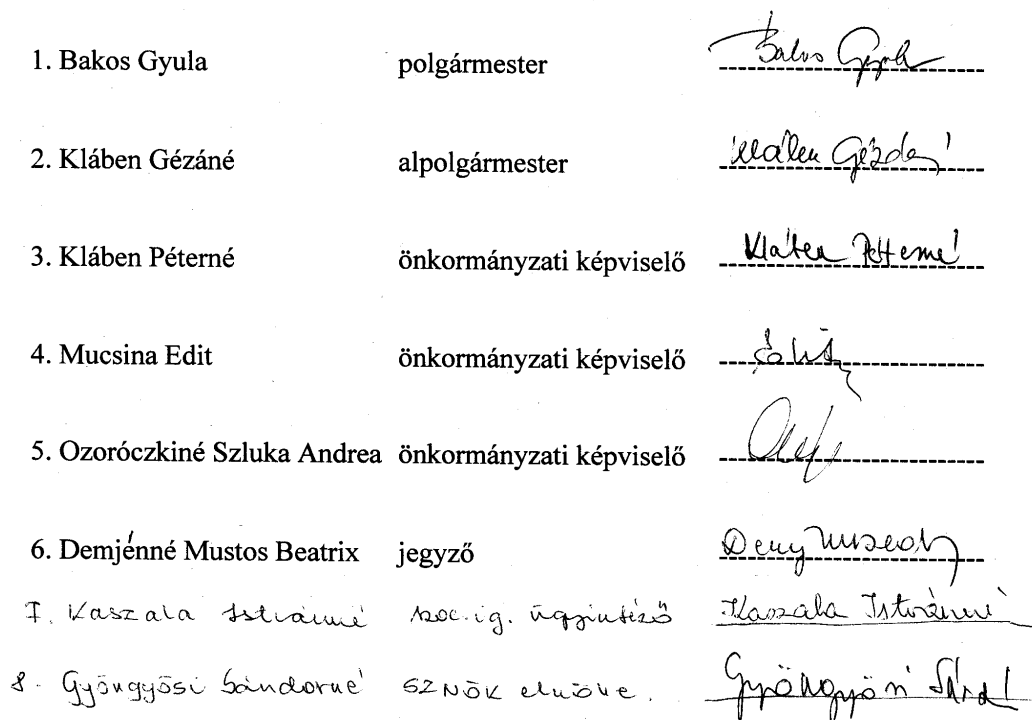 1. Bakos Gyula polgármester Bakos Gyula
2. Kláben Gézáné alpolgármester Kláben Gézáné
3. Kláben Péterné önkormányzati képviselő Kláben Péterné
4. Mucsina Edit önkormányzati képviselő
5. Ozoróczkiné Szluka Andrea önkormányzati képviselő
6. Demjénné Mustos Beatrix jegyző
7. Kaszala Istvánné szoc.ig. ügyintéző Kaszala Istvánné
8. Gyöngyösi Sándorné SZNÖK elnöke. Gyöngyösi